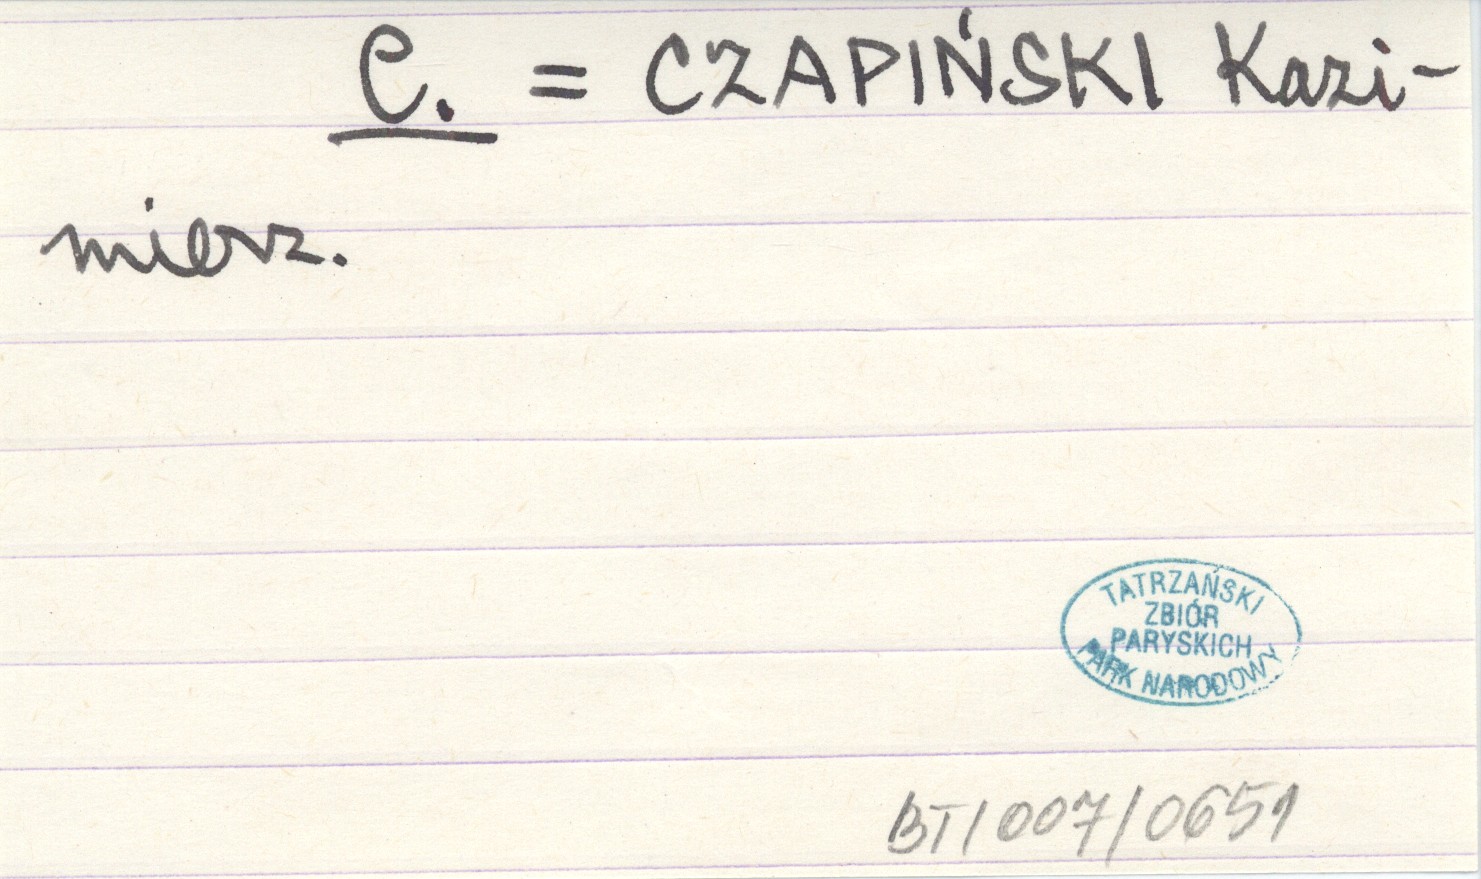 C. = CZAPIŃSKI Kazi-
mierz.
TATRZAŃSKI
ZBIÓR
PARYSKICH
PARK NARODOWY
BT/007/0651